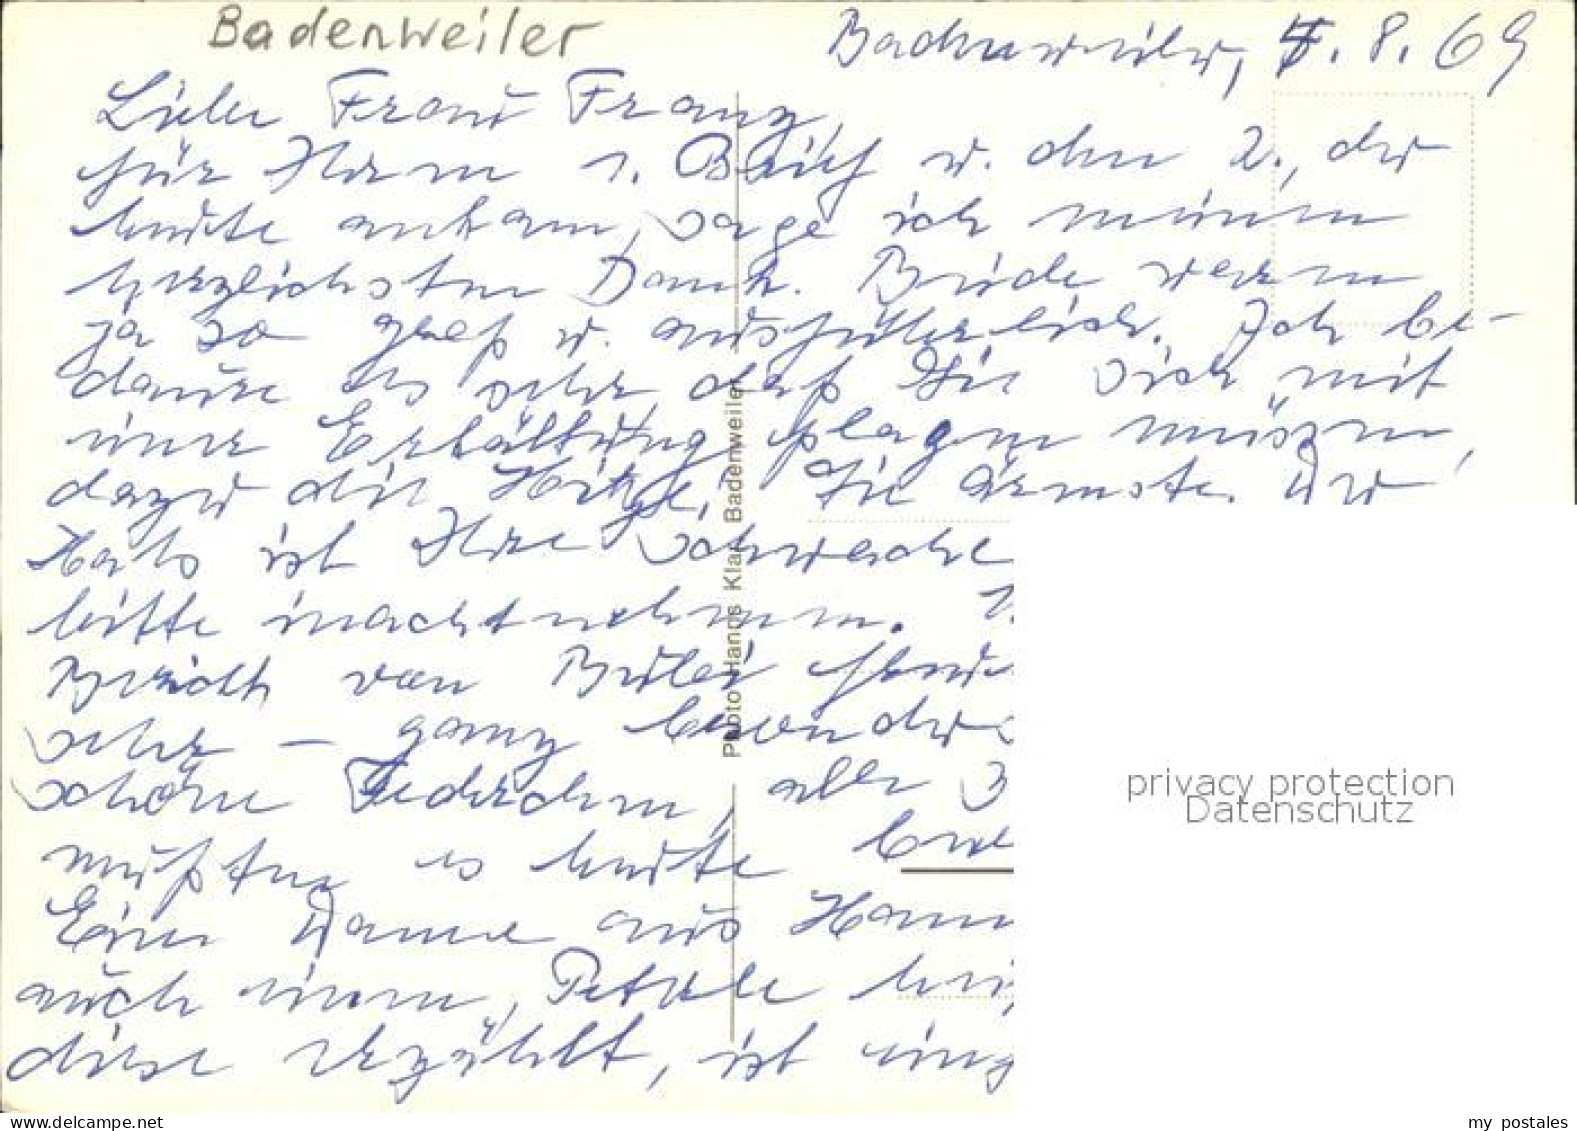 Badenweiler
Badenweiler, 4. 8. 69
Liebe Frau Franz,
für Ihren 1. Brief u. den 2., der
heute ankam, sage ich meinen
herzlichsten Dank. Beide waren
ja so groß u. ausführlich. Ich be-
daure es sehr daß Sie sich mit
einer Erkältung plagen müssen,
dazu die Hitze, Sie Ärmste. Der
Hals ist Ihre Schwäche
bitte inachtnehmen.
Bericht von
sehr - ganz besonders
schöne Federchen, alle 3
mußten es heute
Eine Dame aus Hann
auch einen, Peterle
diese erzählt, ist eing
Photo Hanns Klar Badenweiler
privacy protection
Datenschutz
www.delcampe.net
my_postales